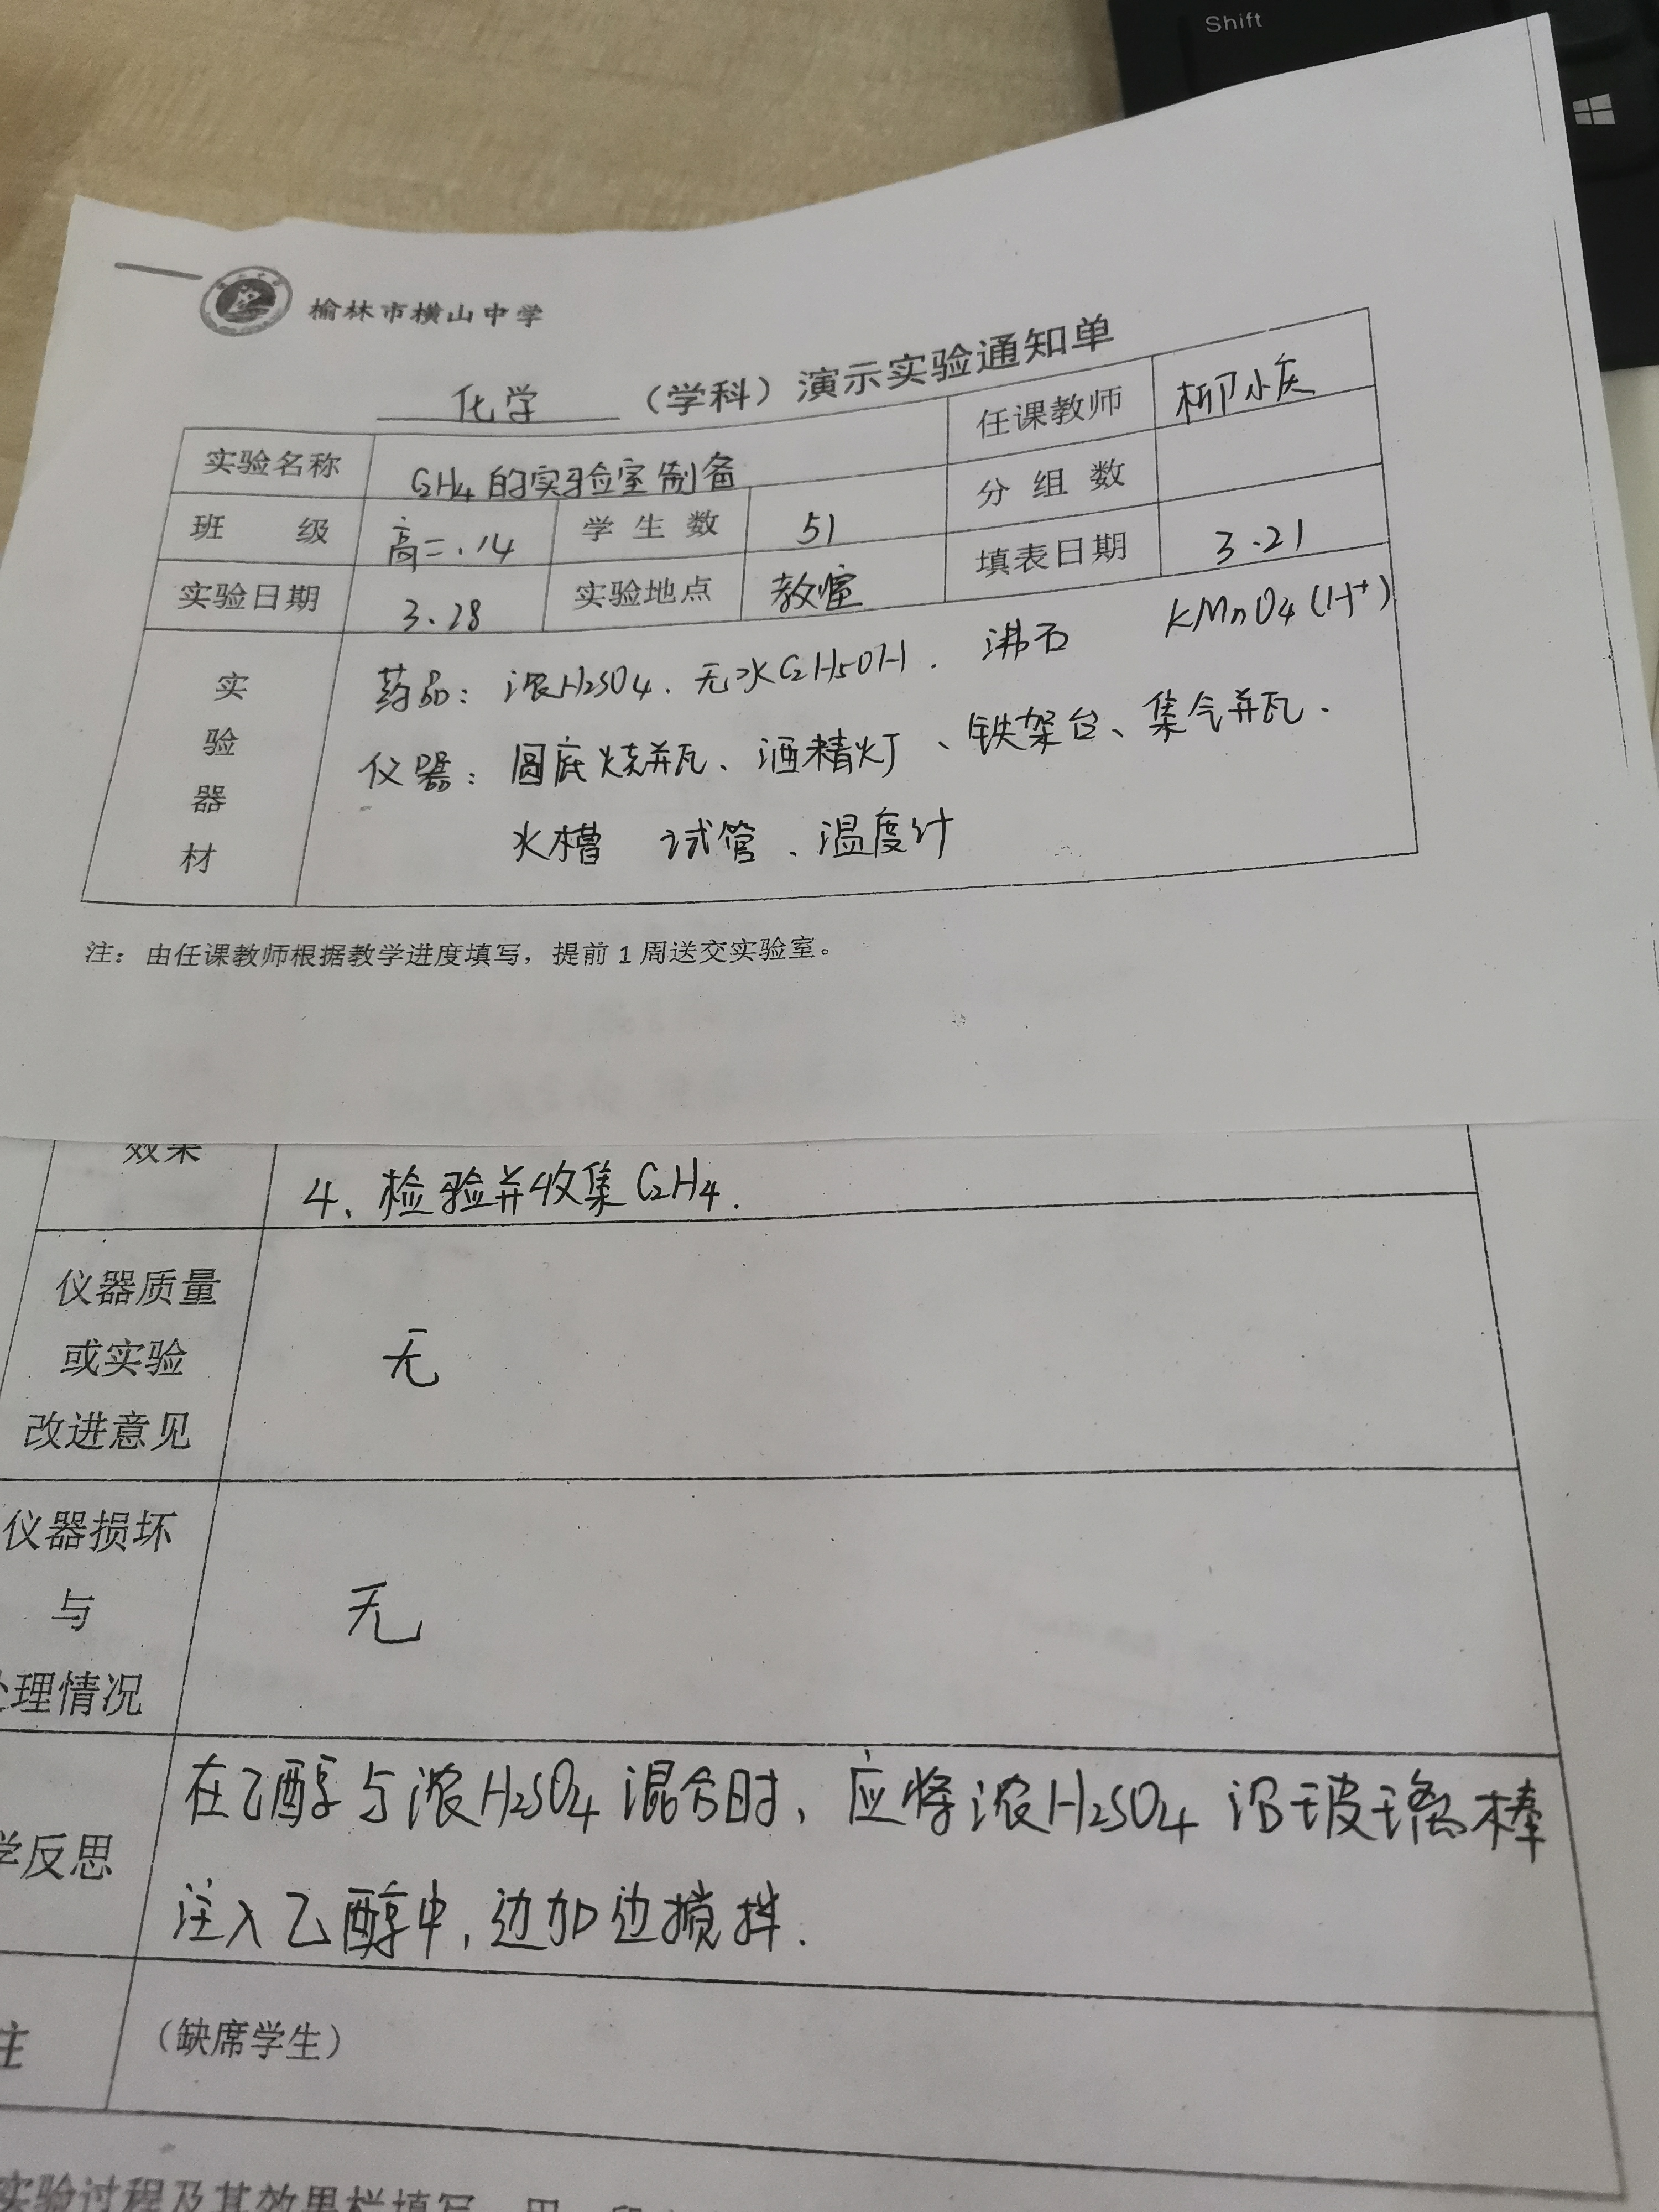 Shift
榆林市横山中学
化学 （学科）演示实验通知单
实验名称 C2H4的实验室制备 任课教师 柳小庆
班 级 高二.14 学生数 51 分组数
实验日期 3.28 实验地点 教室 填表日期 3.21
实验器材
药品：浓H2SO4. 无水C2H5OH. 沸石 KMnO4(H+)
仪器：圆底烧瓶、酒精灯、铁架台、集气瓶.
水槽 试管、温度计
注：由任课教师根据教学进度填写，提前1周送交实验室。
效果
4、检验并收集C2H4.
仪器质量
或实验 无
改进意见
仪器损坏
与 无
处理情况
学反思
在乙醇与浓H2SO4混合时，应将浓H2SO4沿玻璃棒
注入乙醇中，边加边搅拌.
注 （缺席学生）
实验过程及其效果栏填写